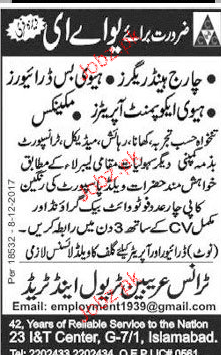 ضرورت برائے یو اے ای
• چارج ہینڈ ریگرز • ہیوی بس ڈرائیورز
• ہیوی ایکوپمنٹ آپریٹرز • مکینکس
تنخواہ حسب تجربہ، کھانا، رہائش، میڈیکل، ٹرانسپورٹ
بذمہ کمپنی دیگر سہولیات مقامی لیبر لاء کے مطابق
خواہش مند حضرات ویلڈ پاسپورٹ کی رنگین
کاپی چار عدد فوٹو وائٹ بیک گراؤنڈ اور
مکمل CV کے ساتھ 3 دن میں رابطہ کریں۔
(نوٹ) ڈرائیور اور آپریٹر کیلئے گلف کا ویلڈ لائسنس لازمی
Per 18532 - 8-12-2017
ٹرانس عریبین ٹریول اینڈ ٹریڈ
Email: employment1939@gmail.com
42, Years of Reliable Service to the Nation
23 I&T Center, G-7/1, Islamabad.
Tel: 2202433 2202434 O.E.P LIC#
Jobz.pk